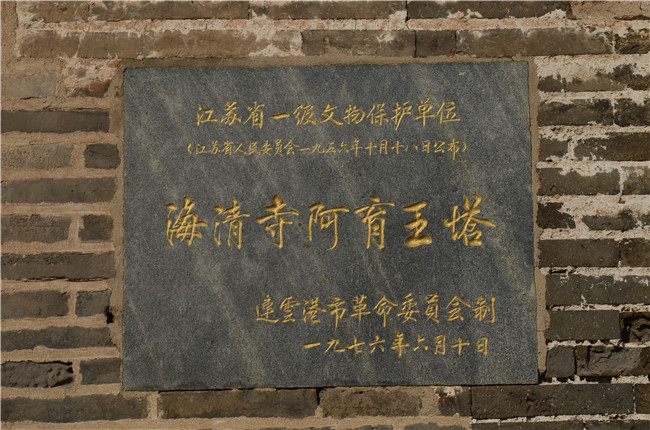 江苏省一级文物保护单位
（江苏省人民委员会一九五六年十月十八日公布）
海清寺阿育王塔
連雲港市革命委員会制
一九七六年六月十日